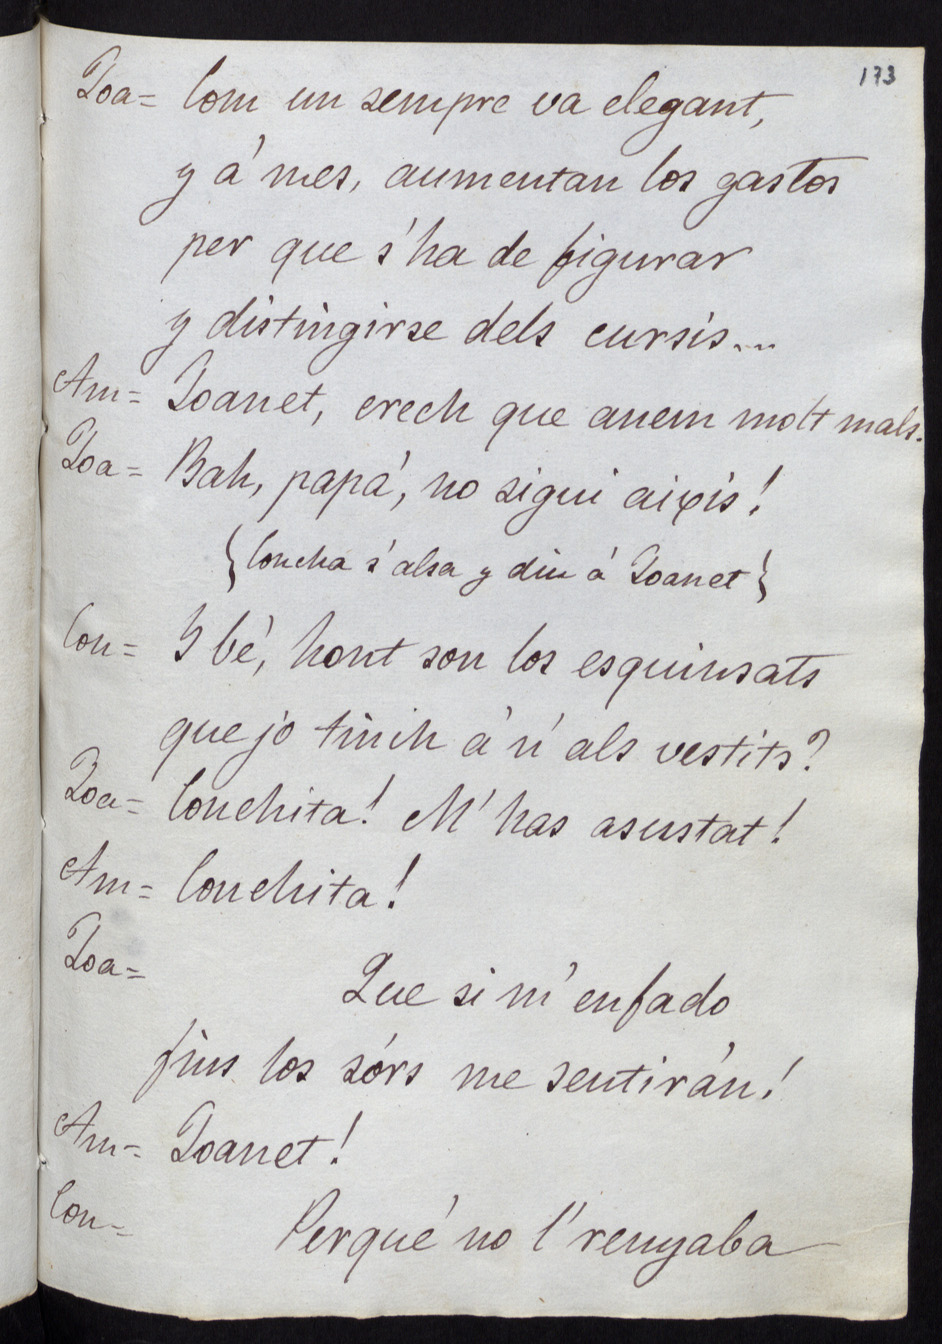 173
Joa= Com un sempre va elegant,
y á mes, aumentan los gastos
per que s'ha de figurar
y distingirse dels cursis...
Am= Joanet, crech que anem molt mals.
Joa= Bah, papá, no sigui aixís!
{Concha s'alsa y diu á Joanet}
Con= Y bé, hont son los esquinsats
que jo tinch á n' als vestits?
Joa= Conchita! M' has asustat!
Am= Conchita!
Joa= Que si m' enfado
fins los sórs me sentirán!
Am= Joanet!
Con= Perqué no l' renyaba